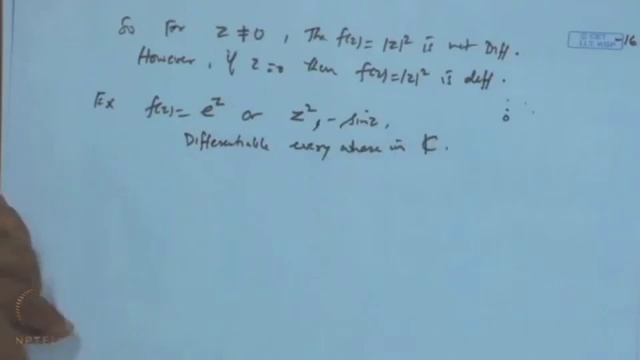 So for z ≠ 0, The f(z) = |z|² is not Diff.
However, if z = 0 then f(z) = |z|² is diff.
Ex f(z) = e^z or z², - sin z,
Differentiable every where in ℂ.
0
-16
NPTEL